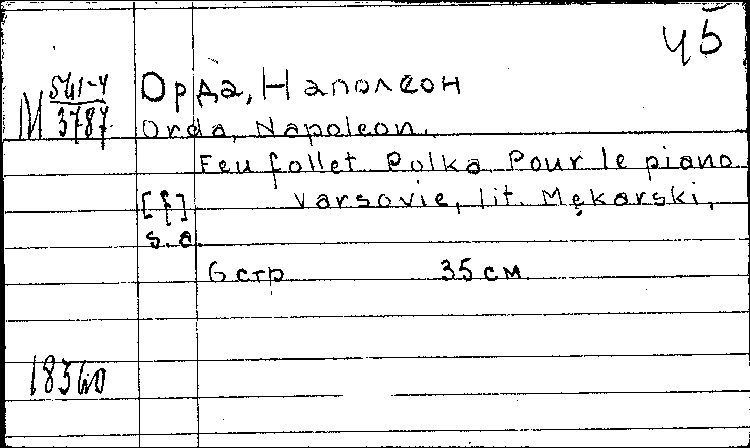 45
M 541-4
3787
Орда, Наполеон
Orda, Napoleon.
Feu follet Polka Pour le piano
[f] Varsovie, lit. Mękarski,
s. a.
6 стр 35 см
18340